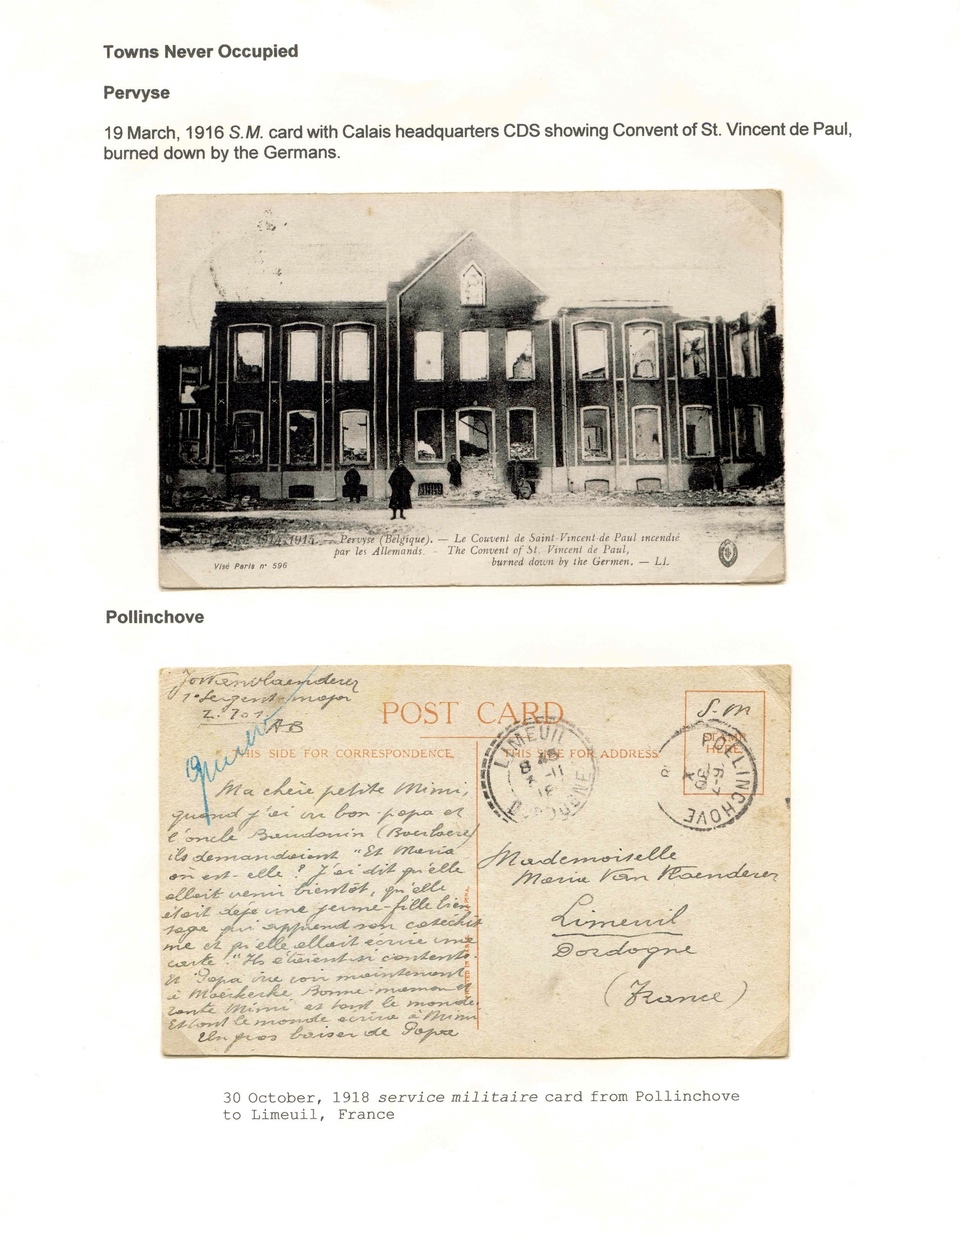 Towns Never Occupied
Pervyse
19 March, 1916 S.M. card with Calais headquarters CDS showing Convent of St. Vincent de Paul,
burned down by the Germans.
1914-1915. — Pervyse (Belgique). — Le Couvent de Saint-Vincent-de Paul incendié
par les Allemands. - The Convent of St. Vincent de Paul,
burned down by the Germen. — LL.
Visé Paris n° 596
Pollinchove
1er Sergent-major
Z. 701
POST CARD
S.M
STAMP
HERE
THIS SIDE FOR CORRESPONDENCE
THIS SIDE FOR ADDRESS
LIMEUIL
DORDOGNE
POLLINCHOVE
Ma chère petite Mimi,
quand j'ai vu bon-papa et
l'oncle Baudouin (Boerlaere)
ils demandaient "Et Maria
où est-elle? J'ai dit qu'elle
allait venir bientôt, qu'elle
était déjà une jeune-fille bien
sage qui apprend son catéchis
me et qu'elle allait écrire une
carte!" Ils étaient si contents.
Et Papa ira voir maintenant
à Moerkerke Bonne-maman et
tante Mimi et tout le monde.
Et tout le monde écrira à Mimi
Un gros baiser de Papa
Mademoiselle
Maria Van Vlaenderen
Limeuil
Dordogne
(France)
30 October, 1918 service militaire card from Pollinchove
to Limeuil, France